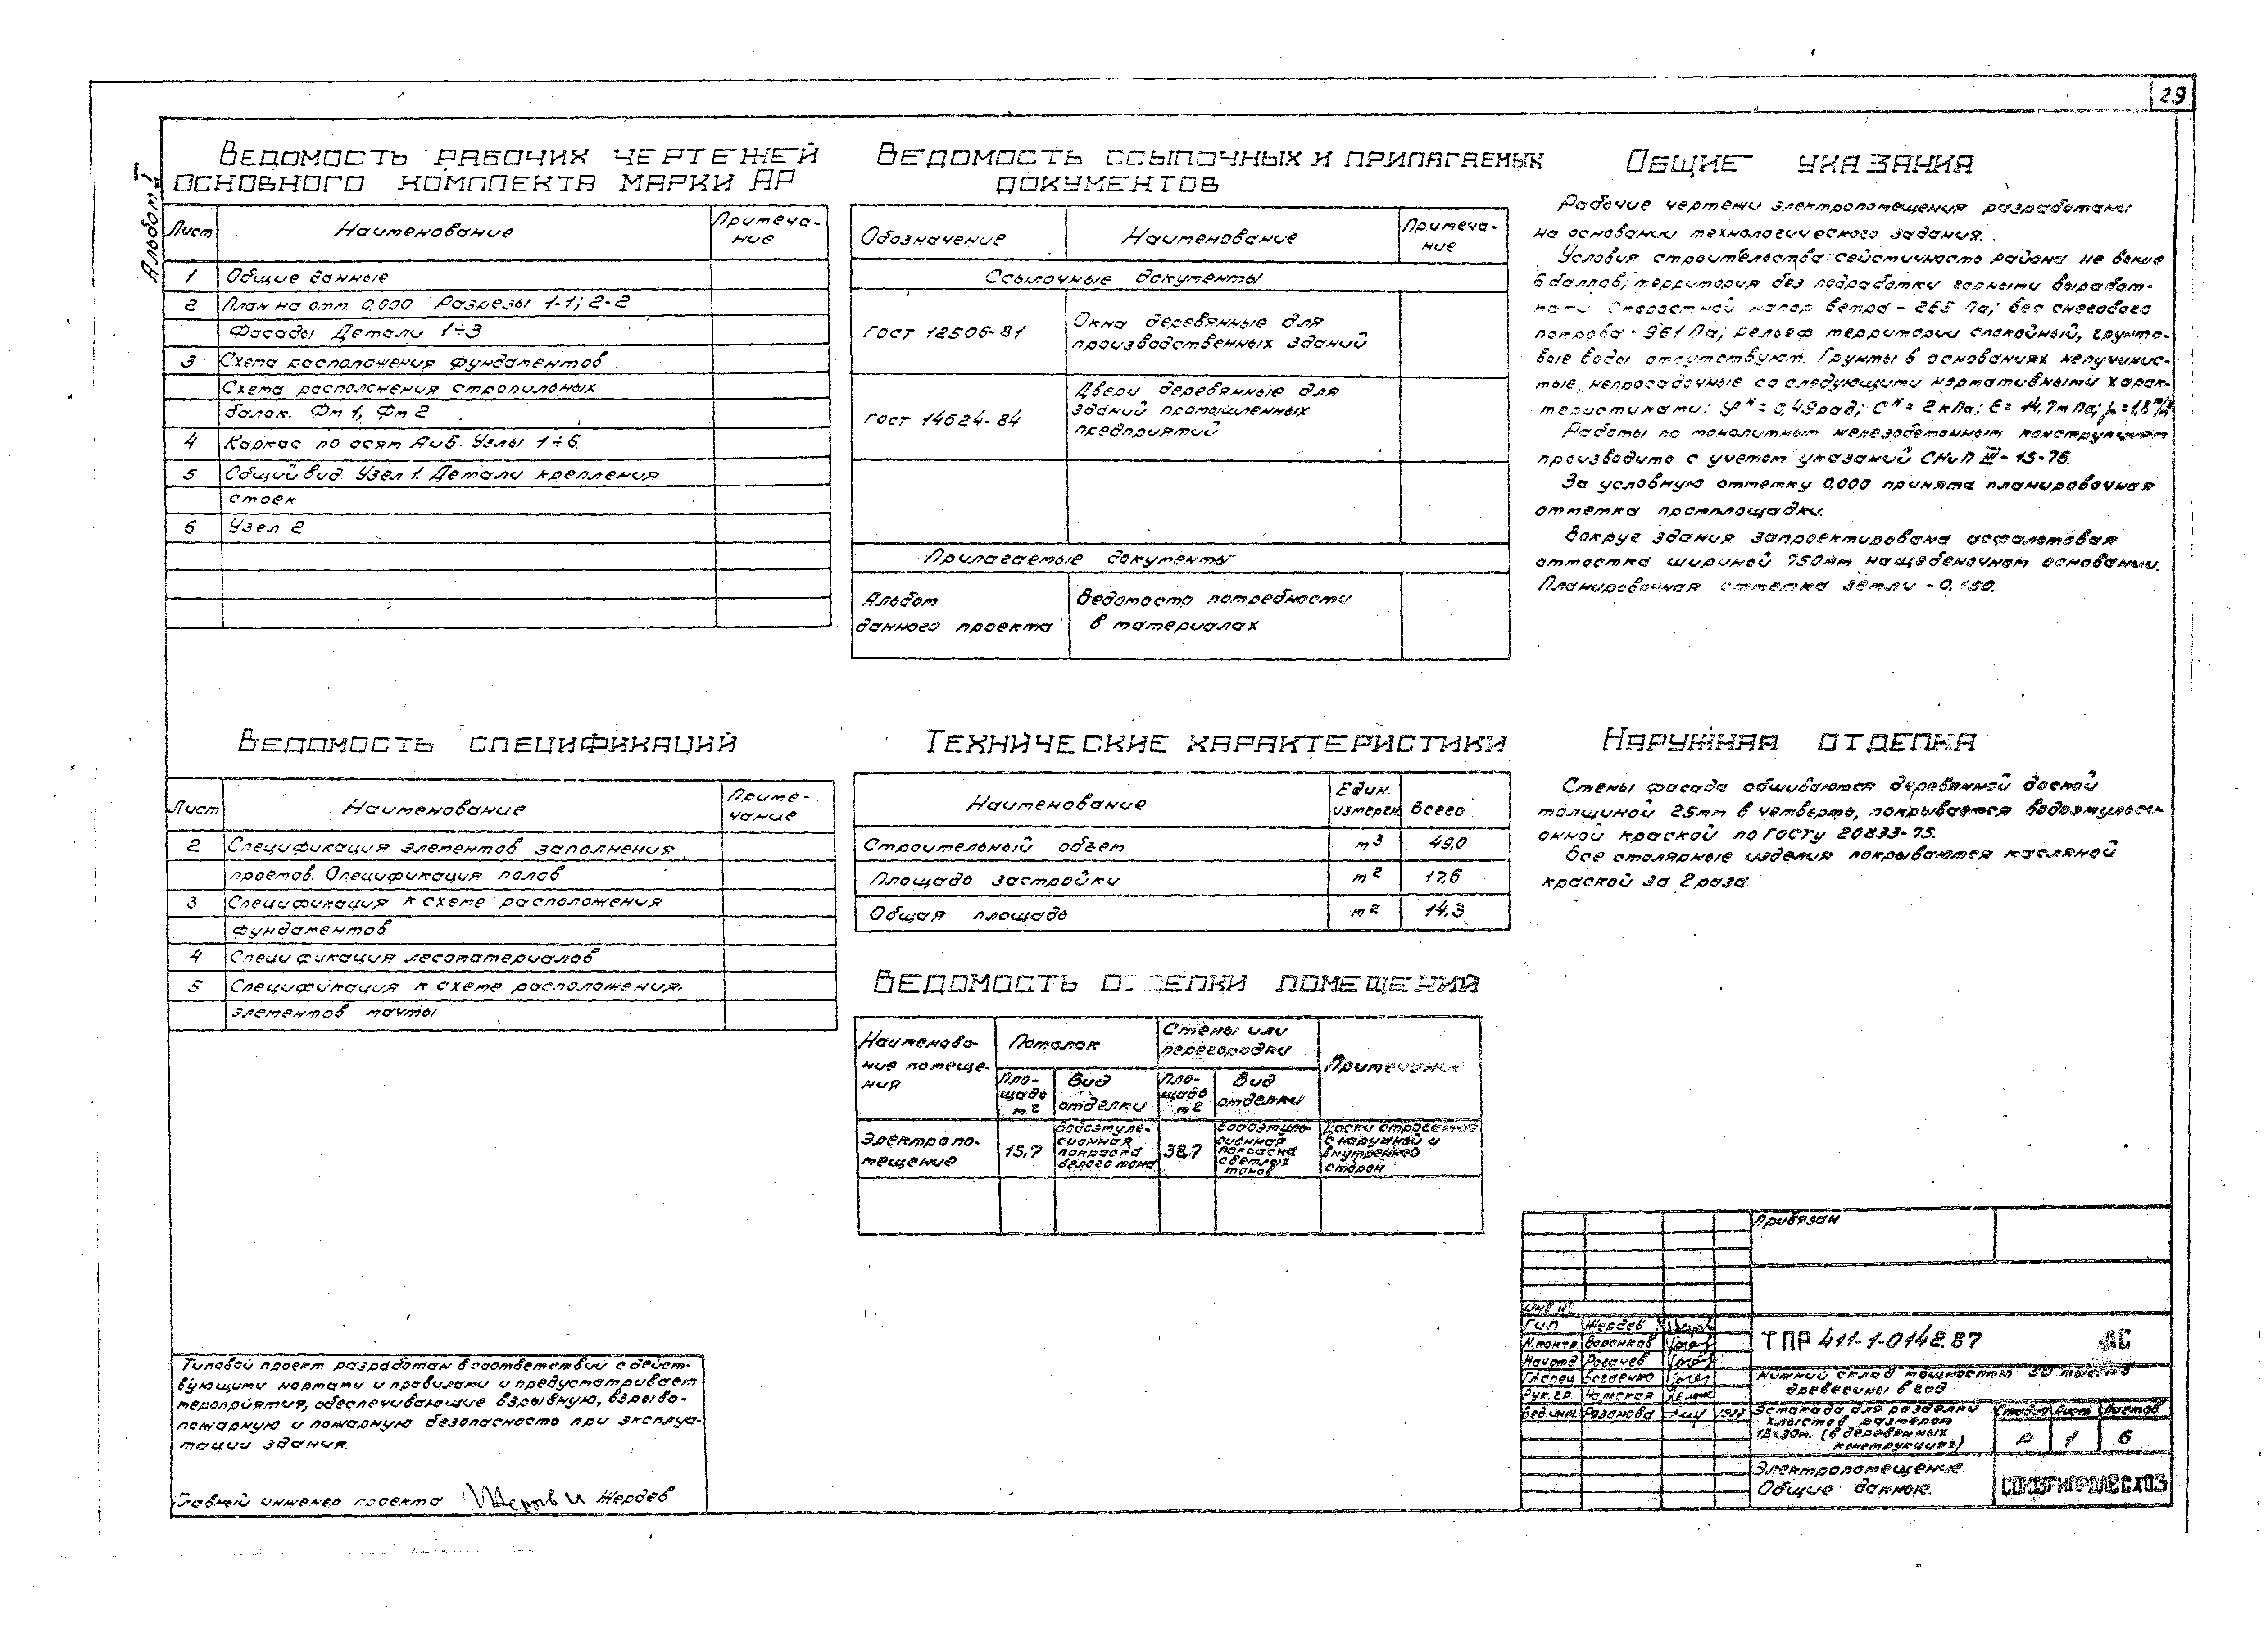 29
Альбом I
Ведомость рабочих чертежей
основного комплекта марки АР
Лист Наименование Примеча-
ние
1 Общие данные
2 План на отм. 0,000. Разрезы 1-1; 2-2
Фасады Детали 1÷3
3 Схема расположения фундаментов
Схема расположения стропильных
балок. Фм 1, Фм 2
4 Каркас по осям А и Б. Узлы 1÷6.
5 Общий вид. Узел 1. Детали крепления
стоек
6 Узел 2
Ведомость ссылочных и прилагаемых
документов
Обозначение Наименование Примеча-
ние
Ссылочные документы
ГОСТ 12506-81 Окна деревянные для
производственных зданий
ГОСТ 14624-84 Двери деревянные для
зданий промышленных
предприятий
Прилагаемые документы
Альбом Ведомость потребности
данного проекта в материалах
Общие указания
Рабочие чертежи электропомещения разработаны
на основании технологического задания.
Условия строительства: сейсмичность района не выше
6 баллов; территория без подработки горными выработ-
ками Скоростной напор ветра - 265 Па; вес снегового
покрова - 961 Па; рельеф территории спокойный, грунто-
вые воды отсутствуют. Грунты в основаниях непучинис-
тые, непросадочные со следующими нормативными харак-
теристиками: φᴴ = 0,49 рад; Сᴴ = 2 кПа; Е = 14,7 мПа; ρ = 1,8 т/м³
Работы по монолитным железобетонным конструкциям
производить с учетом указаний СНиП III-15-76.
За условную отметку 0,000 принята планировочная
отметка промплощадки.
Вокруг здания запроектирована асфальтовая
отмостка шириной 750мм на щебеночном основании.
Планировочная отметка земли - 0,150.
Ведомость спецификаций
Лист Наименование Приме-
чание
2 Спецификация элементов заполнения
проемов. Спецификация полов
3 Спецификация к схеме расположения
фундаментов
4 Спецификация лесоматериалов
5 Спецификация к схеме расположения
элементов мачты
Технические характеристики
Наименование Един.
измерен. Всего
Строительный объем м³ 49,0
Площадь застройки м² 17,6
Общая площадь м² 14,3
Ведомость отделки помещений
Наименова-
ние помеще-
ния
Потолок
Стены или
перегородки
Примечание
Пло-
щадь
м²
Вид
отделки
Пло-
щадь
м²
Вид
отделки
Электропо-
мещение
15,7
Водоэмуль-
сионная
покраска
белого тона
38,7
Водоэмуль-
сионная
покраска
светлых
тонов
Доски строганые
с наружной и
внутренней
сторон
Наружная отделка
Стены фасада обшиваются деревянной доской
толщиной 25мм в четверть, покрывается водоэмульси-
онной краской по ГОСТу 20833-75.
Все столярные изделия покрываются масляной
краской за 2 раза.
Типовой проект разработан в соответствии с дейст-
вующими нормами и правилами и предусматривает
мероприятия, обеспечивающие взрывную, взрыво-
пожарную и пожарную безопасность при эксплуа-
тации здания.
Главный инженер проекта Жердев
Привязан
Инв №
ГИП Жердев
Н.контр. Воронков
Нач.отд Рогачев
Гл.спец
Рук.гр
Вед.инж. Рязанова 1987
ТПР 411-1-0142.87 АС
Нижний склад мощностью 30 тыс. м3
древесины в год
Эстакада для разделки
хлыстов размером
18х30м. (в деревянных
конструкциях)
Стадия Лист Листов
Р 1 6
Электропомещение.
Общие данные.
СОЮЗГИПРОЛЕСХОЗ